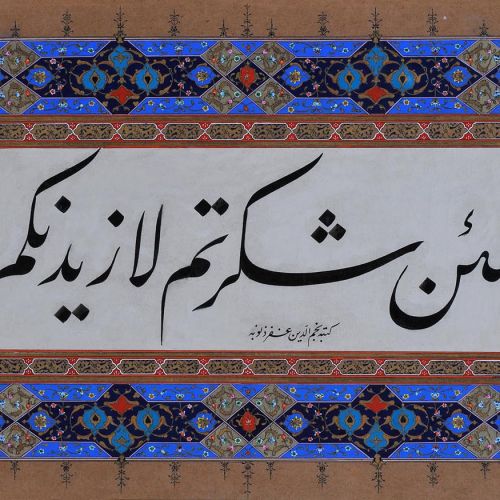 لئن شکرتم لازیدنکم
کتبه نجم الدین غفر ذنوبه